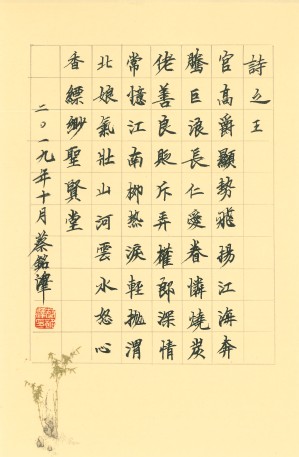 詩之王
官高爵顯勢飛揚江海奔
騰巨浪長仁愛眷憐燒炭
佬善良貶斥弄權郎深情
常憶江南柳熱淚輕拋渭
北娘氣壯山河雲水怒心
香縹緲聖賢堂
二〇一九年十月蔡銘澤